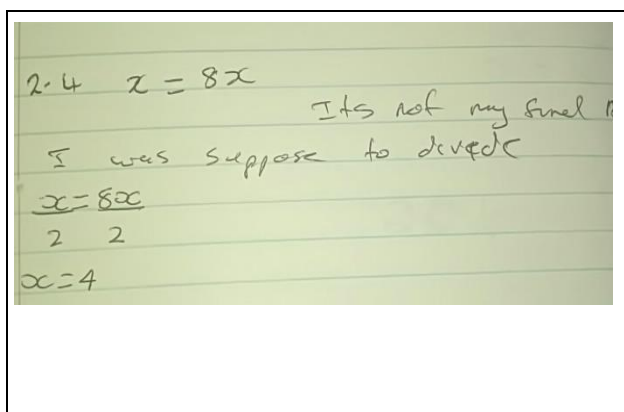 2.4 x = 8x
Its not my finel
I was suppose to devede
x = 8x
2 2
x = 4